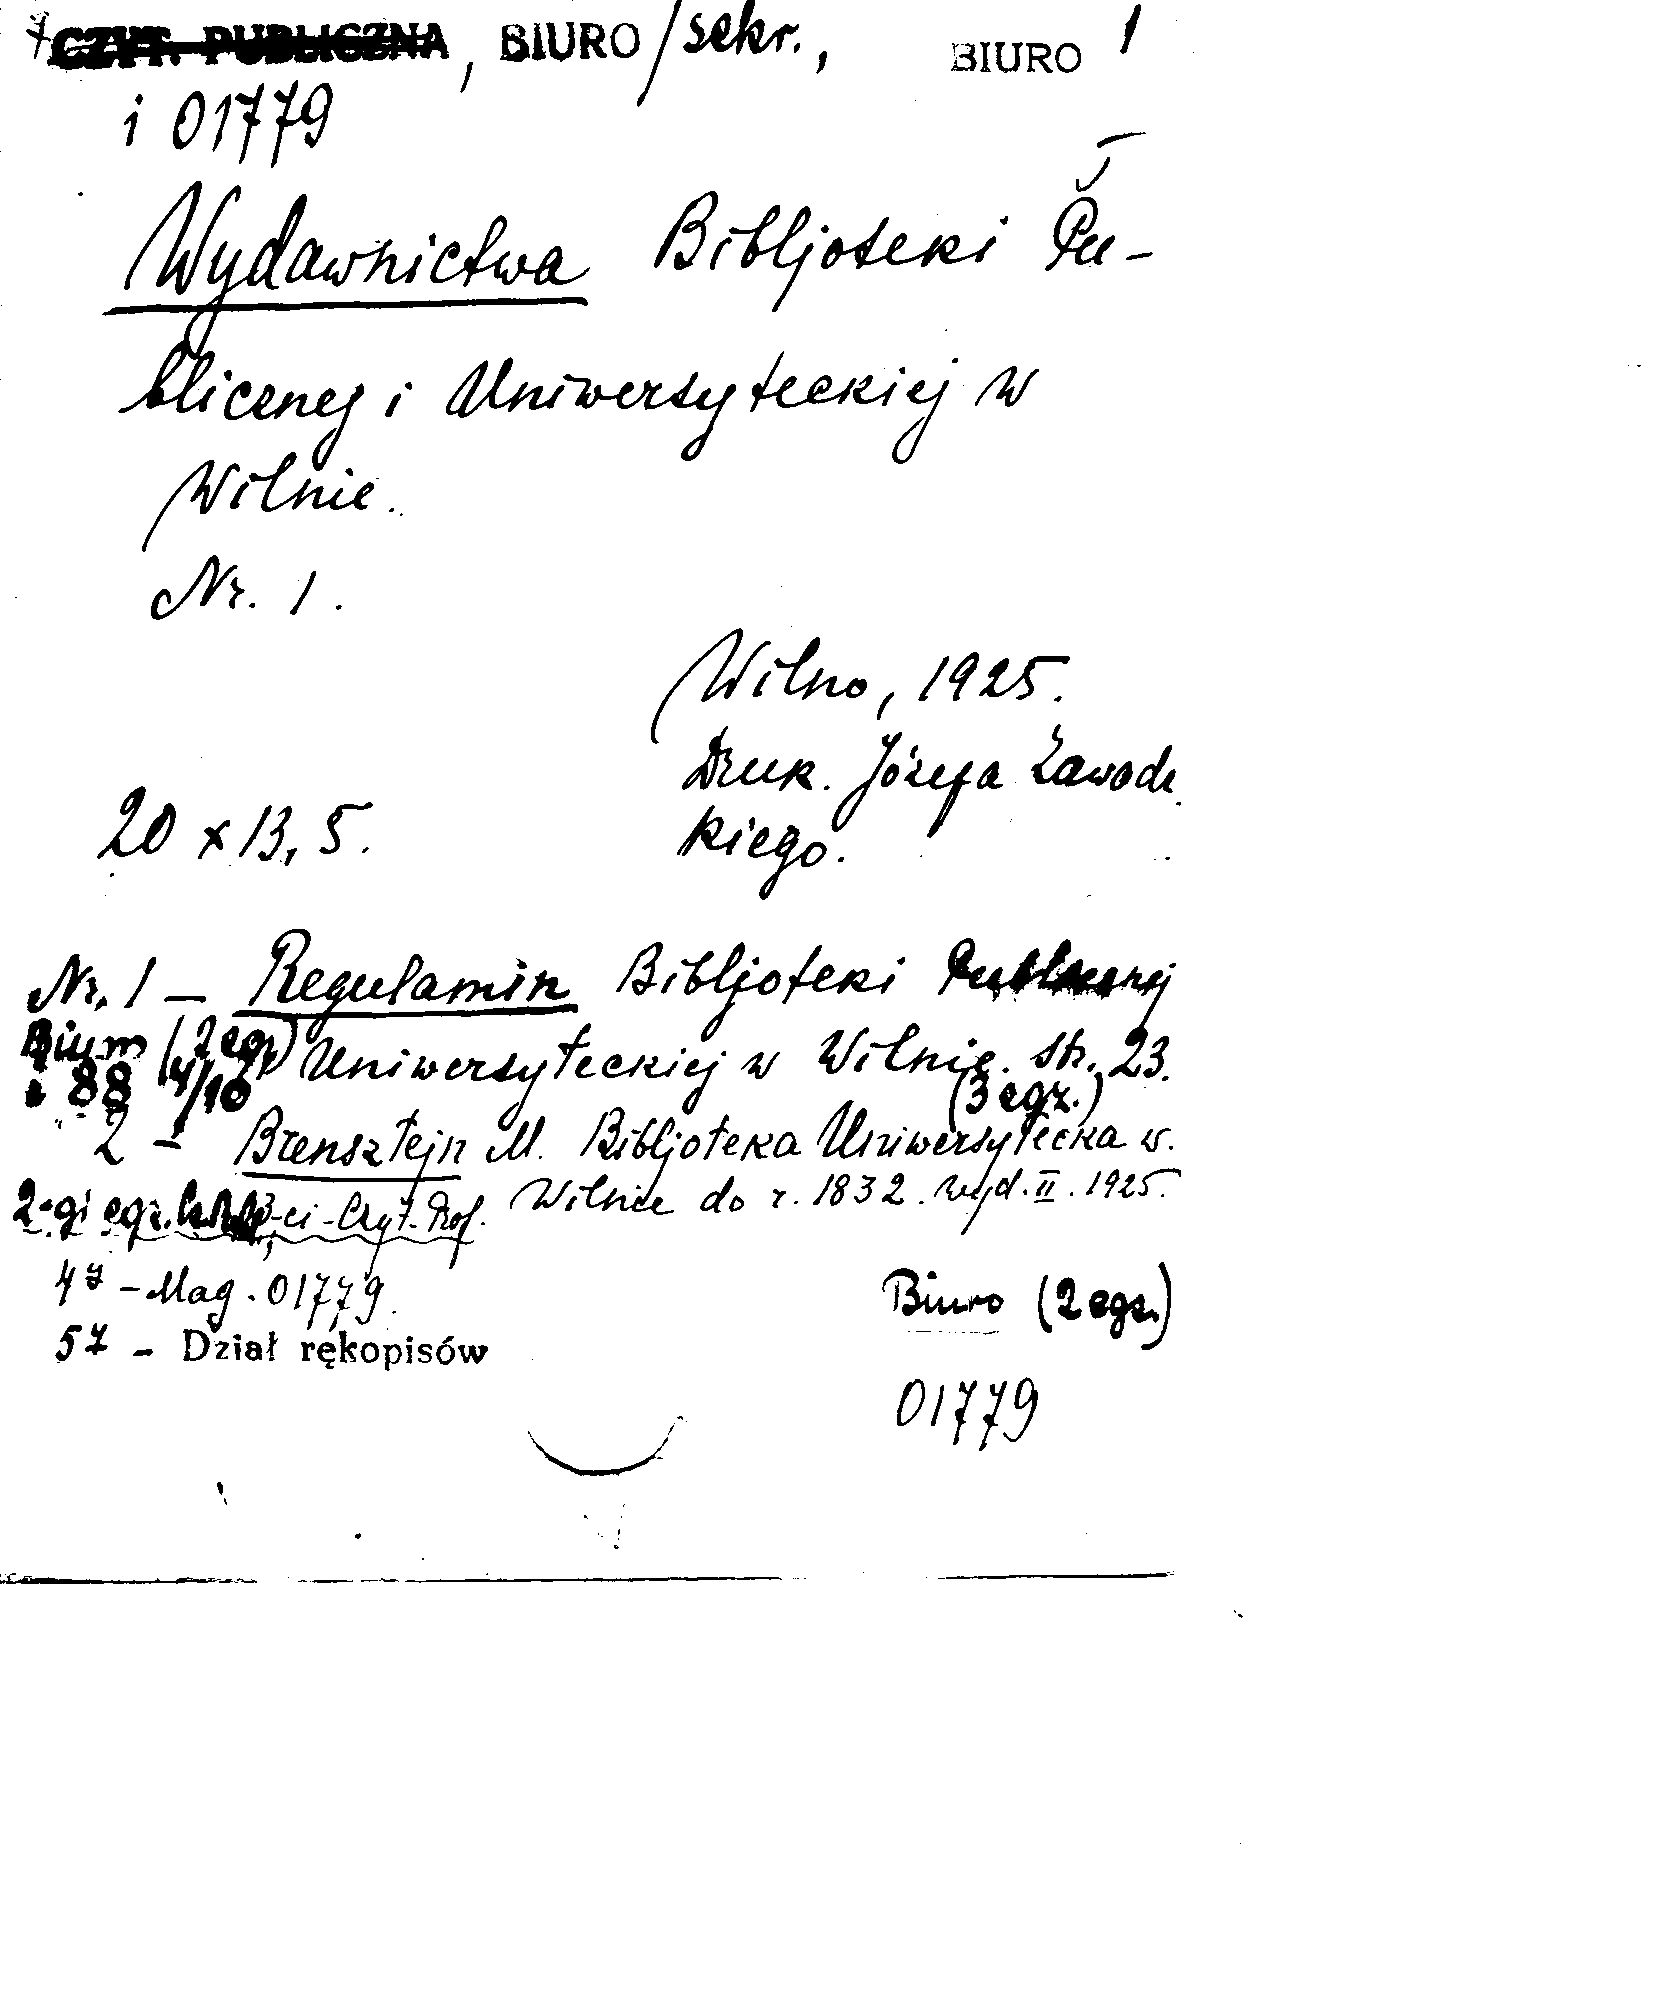 CZYT. PUBLICZNA, BIURO/sekr., BIURO 1
i 01779
I
Wydawnictwa Bibljoteki Pu-
blicznej i Uniwersyteckiej w
Wilnie.
Nr. 1.
Wilno, 1925.
Druk. Józefa Zawadz
kiego.
20 x 13,5.
Nr. 1 — Regulamin Bibljoteki Publicznej
Biuro (2 egz) Uniwersyteckiej w Wilnie. str. 23.
i 88 4/10 (3 egz.)
2 — Brensztejn M. Bibljoteka Uniwersytecka w.
Wilnie do r. 1832. wyd. II. 1925.
2-gi egz. 3-ci - Czyt. Prof.
4y - Mag. 01779.
5y - Dział rękopisów
Biuro (2 egz.)
01779